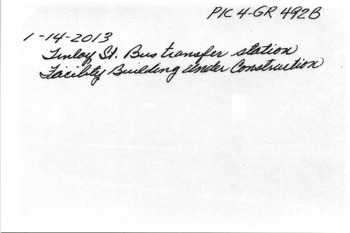 PIC 4-GR 492B
1-14-2013
Finlay St. Bus transfer station
Facility Building Under Construction